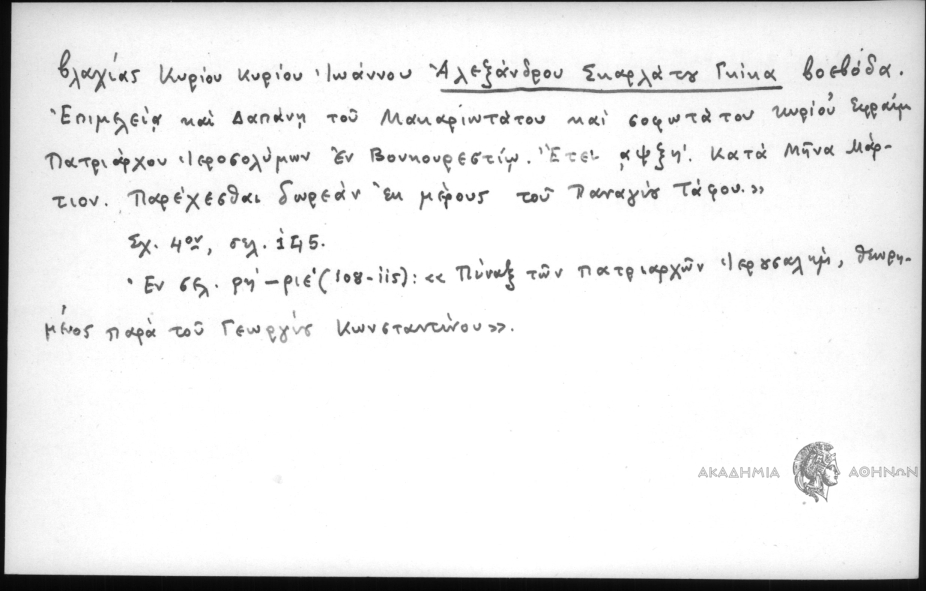 βλαχίας Κυρίου κυρίου Ἰωάννου Ἀλεξάνδρου Σκαρλάτου Γκίκα βοεβόδα.
Ἐπιμελείᾳ καὶ Δαπάνῃ τοῦ Μακαριωτάτου καὶ σοφωτάτου κυρίου Ἐφραὶμ
Πατριάρχου Ἱεροσολύμων Ἐν Βουκουρεστίῳ. Ἔτει ͵αψξη΄. Κατὰ Μῆνα Μάρ-
τιον. Παρέχεσθαι δωρεὰν ἐκ μέρους τοῦ Παναγίου Τάφου.»
Σχ. 4ον, σελ. 145.
Ἐν σελ. ρη΄-ριε΄ (108-115): «Πίναξ τῶν πατριαρχῶν Ἱερουσαλήμ, θεωρη-
μένος παρὰ τοῦ Γεωργίου Κωνσταντίνου».
ΑΚΑΔΗΜΙΑ ΑΘΗΝΩΝ